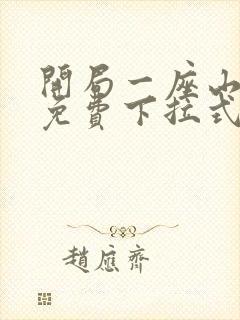 開局一座山
免費下拉式
趙應齊